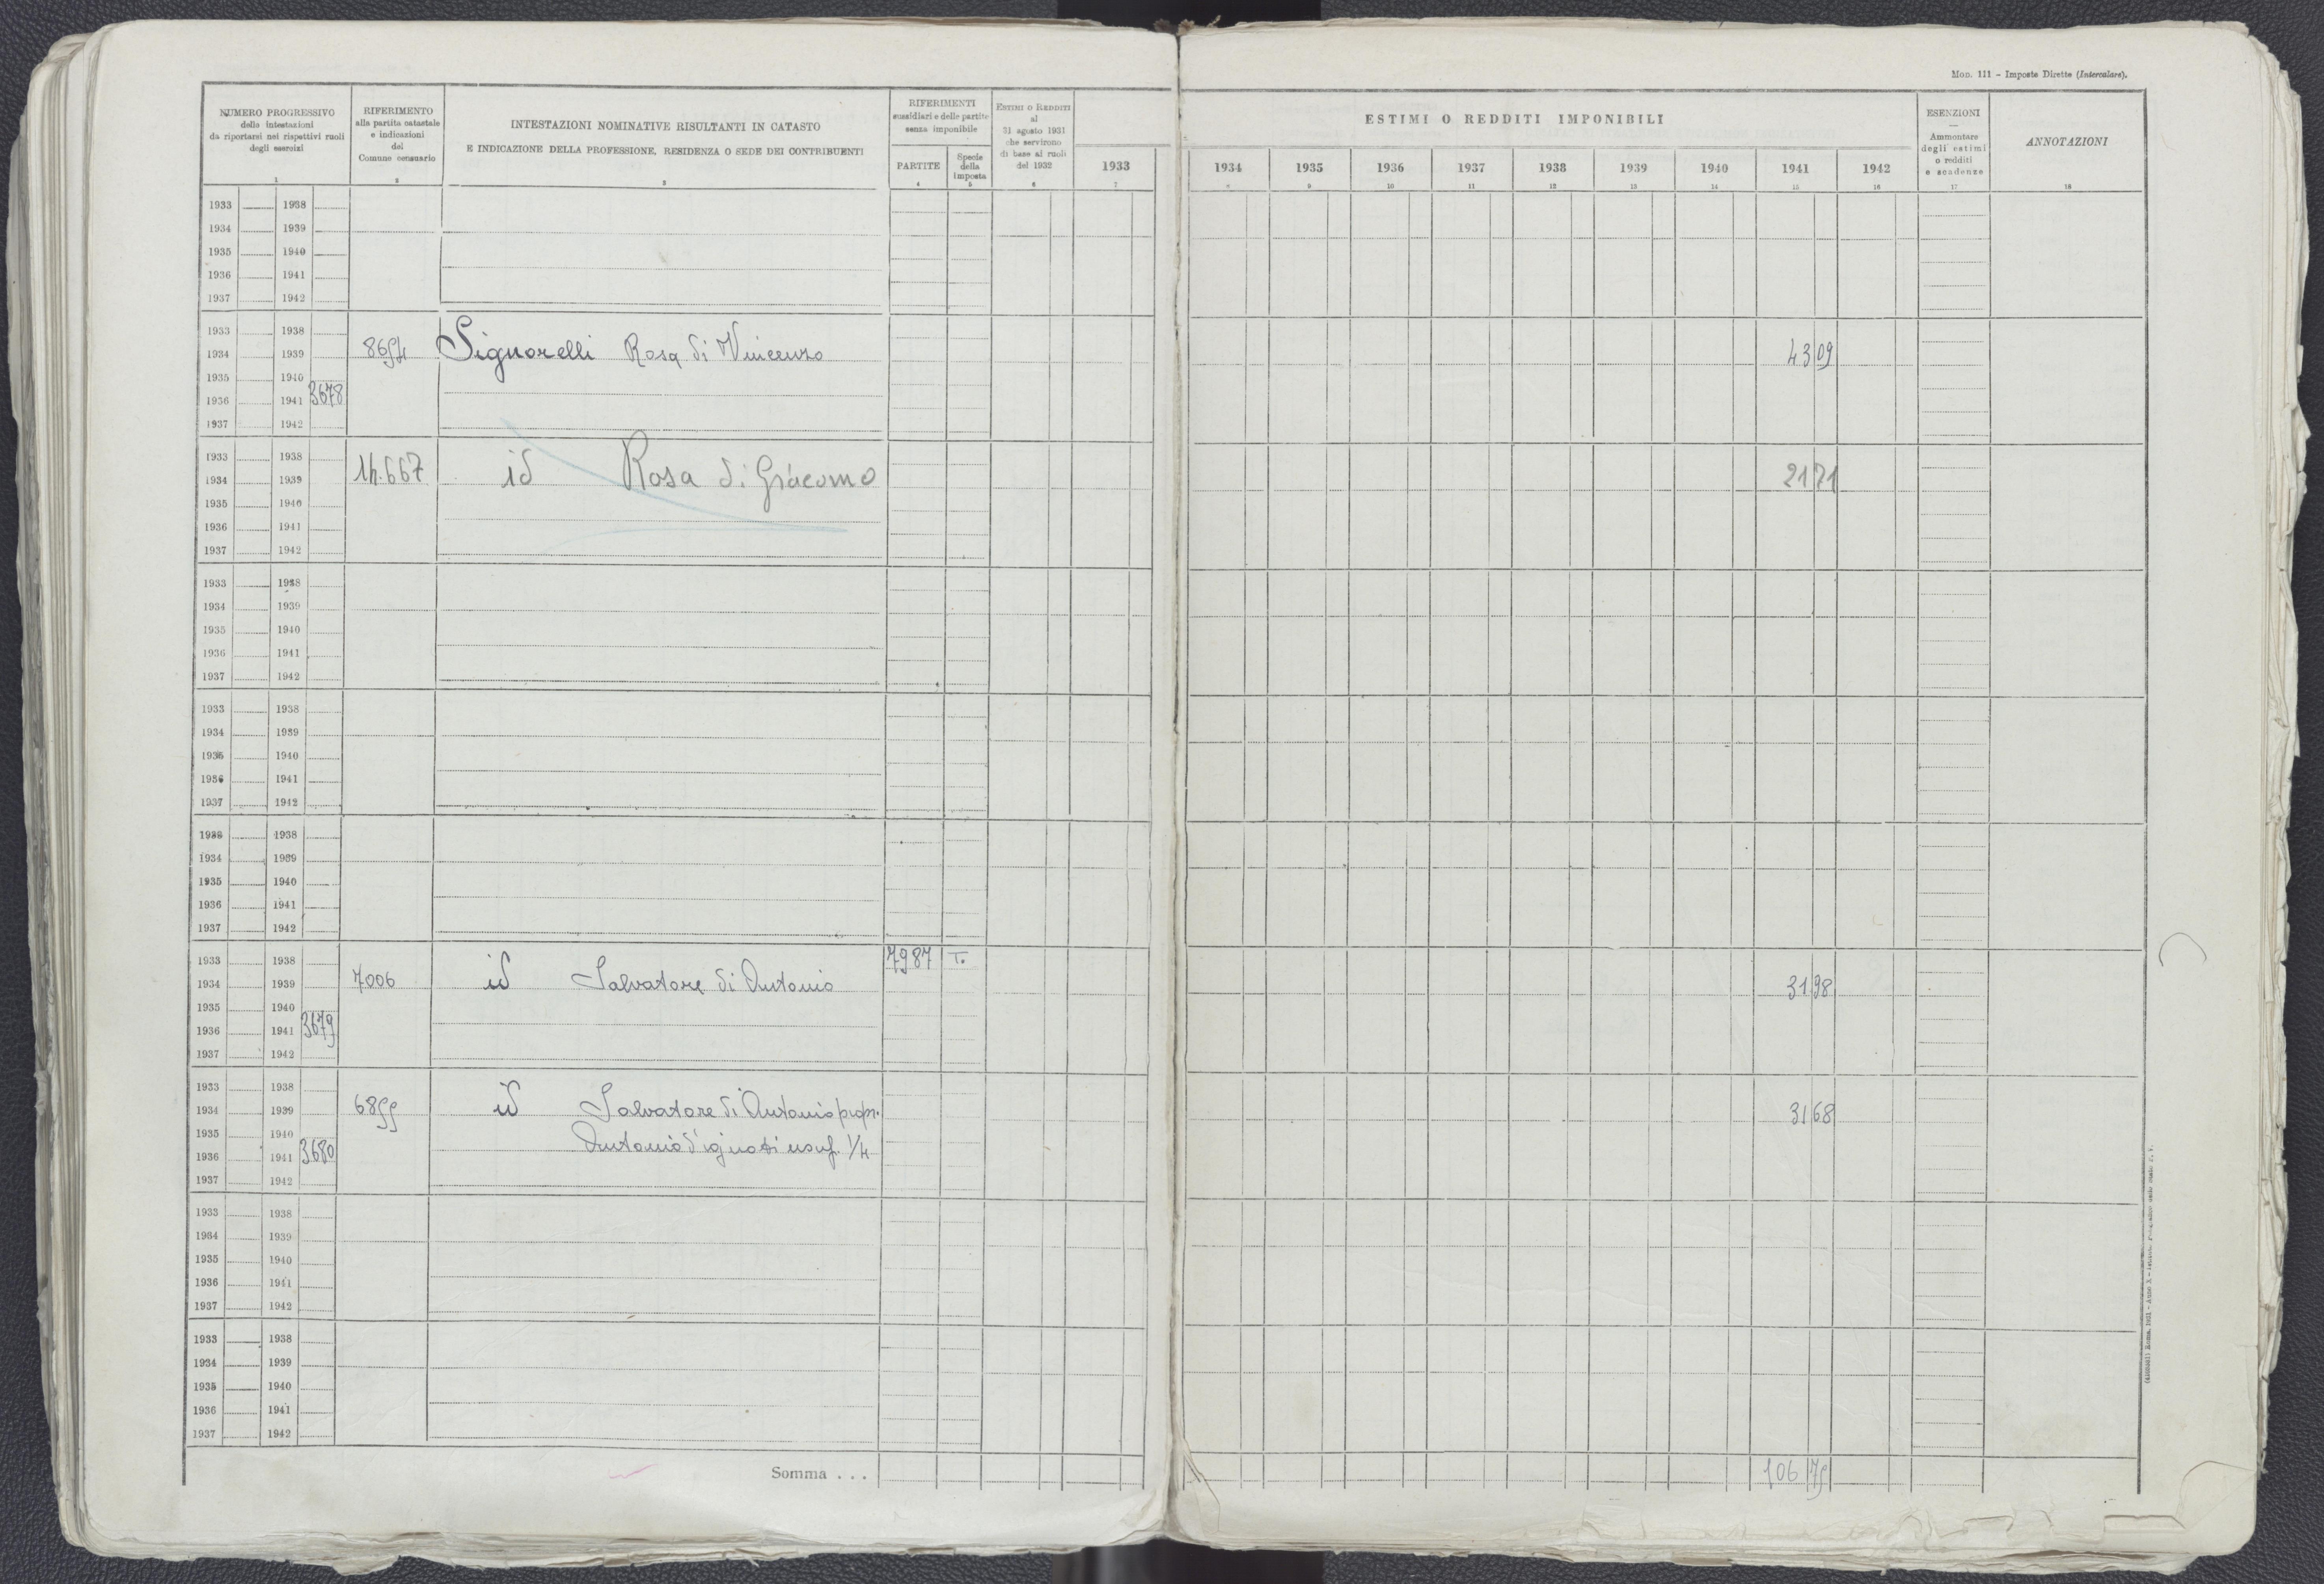 Mod. 111 - Imposte Dirette (Intercalare).
NUMERO PROGRESSIVO
delle intestazioni
da riportarsi nei rispettivi ruoli
degli esercizi
1
RIFERIMENTO
alla partita catastale
e indicazioni
del
Comune censuario
2
INTESTAZIONI NOMINATIVE RISULTANTI IN CATASTO
E INDICAZIONE DELLA PROFESSIONE, RESIDENZA O SEDE DEI CONTRIBUENTI
3
RIFERIMENTI
sussidiari e delle partite
senza imponibile
PARTITE
4
Specie
della
imposta
5
ESTIMI O REDDITI
al
31 agosto 1931
che servirono
di base ai ruoli
del 1932
6
1933
7
ESTIMI O REDDITI IMPONIBILI
1934 1935 1936 1937 1938 1939 1940 1941 1942
8 9 10 11 12 13 14 15 16
ESENZIONI
Ammontare
degli estimi
o redditi
e scadenze
17
ANNOTAZIONI
18
1933 1938
1934 1939
1935 1940
1936 1941
1937 1942
1933 1938
1934 1939 8654 Signorelli Rosa di Vincenzo 43 09
1935 1940
1936 1941 3678
1937 1942
1933 1938
1934 1939 14.667 id Rosa di Giacomo 21 71
1935 1940
1936 1941
1937 1942
1933 1938
1934 1939
1935 1940
1936 1941
1937 1942
1933 1938
1934 1939
1935 1940
1936 1941
1937 1942
1933 1938
1934 1939
1935 1940
1936 1941
1937 1942
1933 1938 7987 T.
1934 1939 7006 id Salvatore di Antonio 31 98
1935 1940
1936 1941 3679
1937 1942
1933 1938
1934 1939 6855 id Salvatore di Antonio propr. 31 68
1935 1940
1936 1941 3680 Antonio d'ignoti usuf. 1/4
1937 1942
1933 1938
1934 1939
1935 1940
1936 1941
1937 1942
1933 1938
1934 1939
1935 1940
1936 1941
1937 1942
Somma . . . 106 75